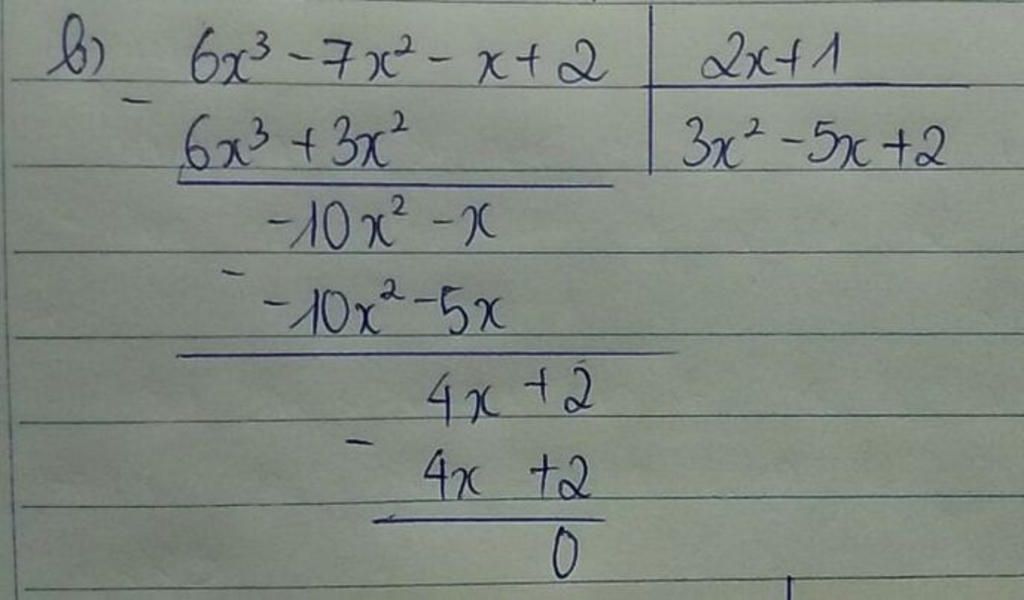 b) 6x³ - 7x² - x + 2 | 2x + 1
- 6x³ + 3x² | 3x² - 5x + 2
-10x² - x
- -10x² - 5x
4x + 2
- 4x + 2
0